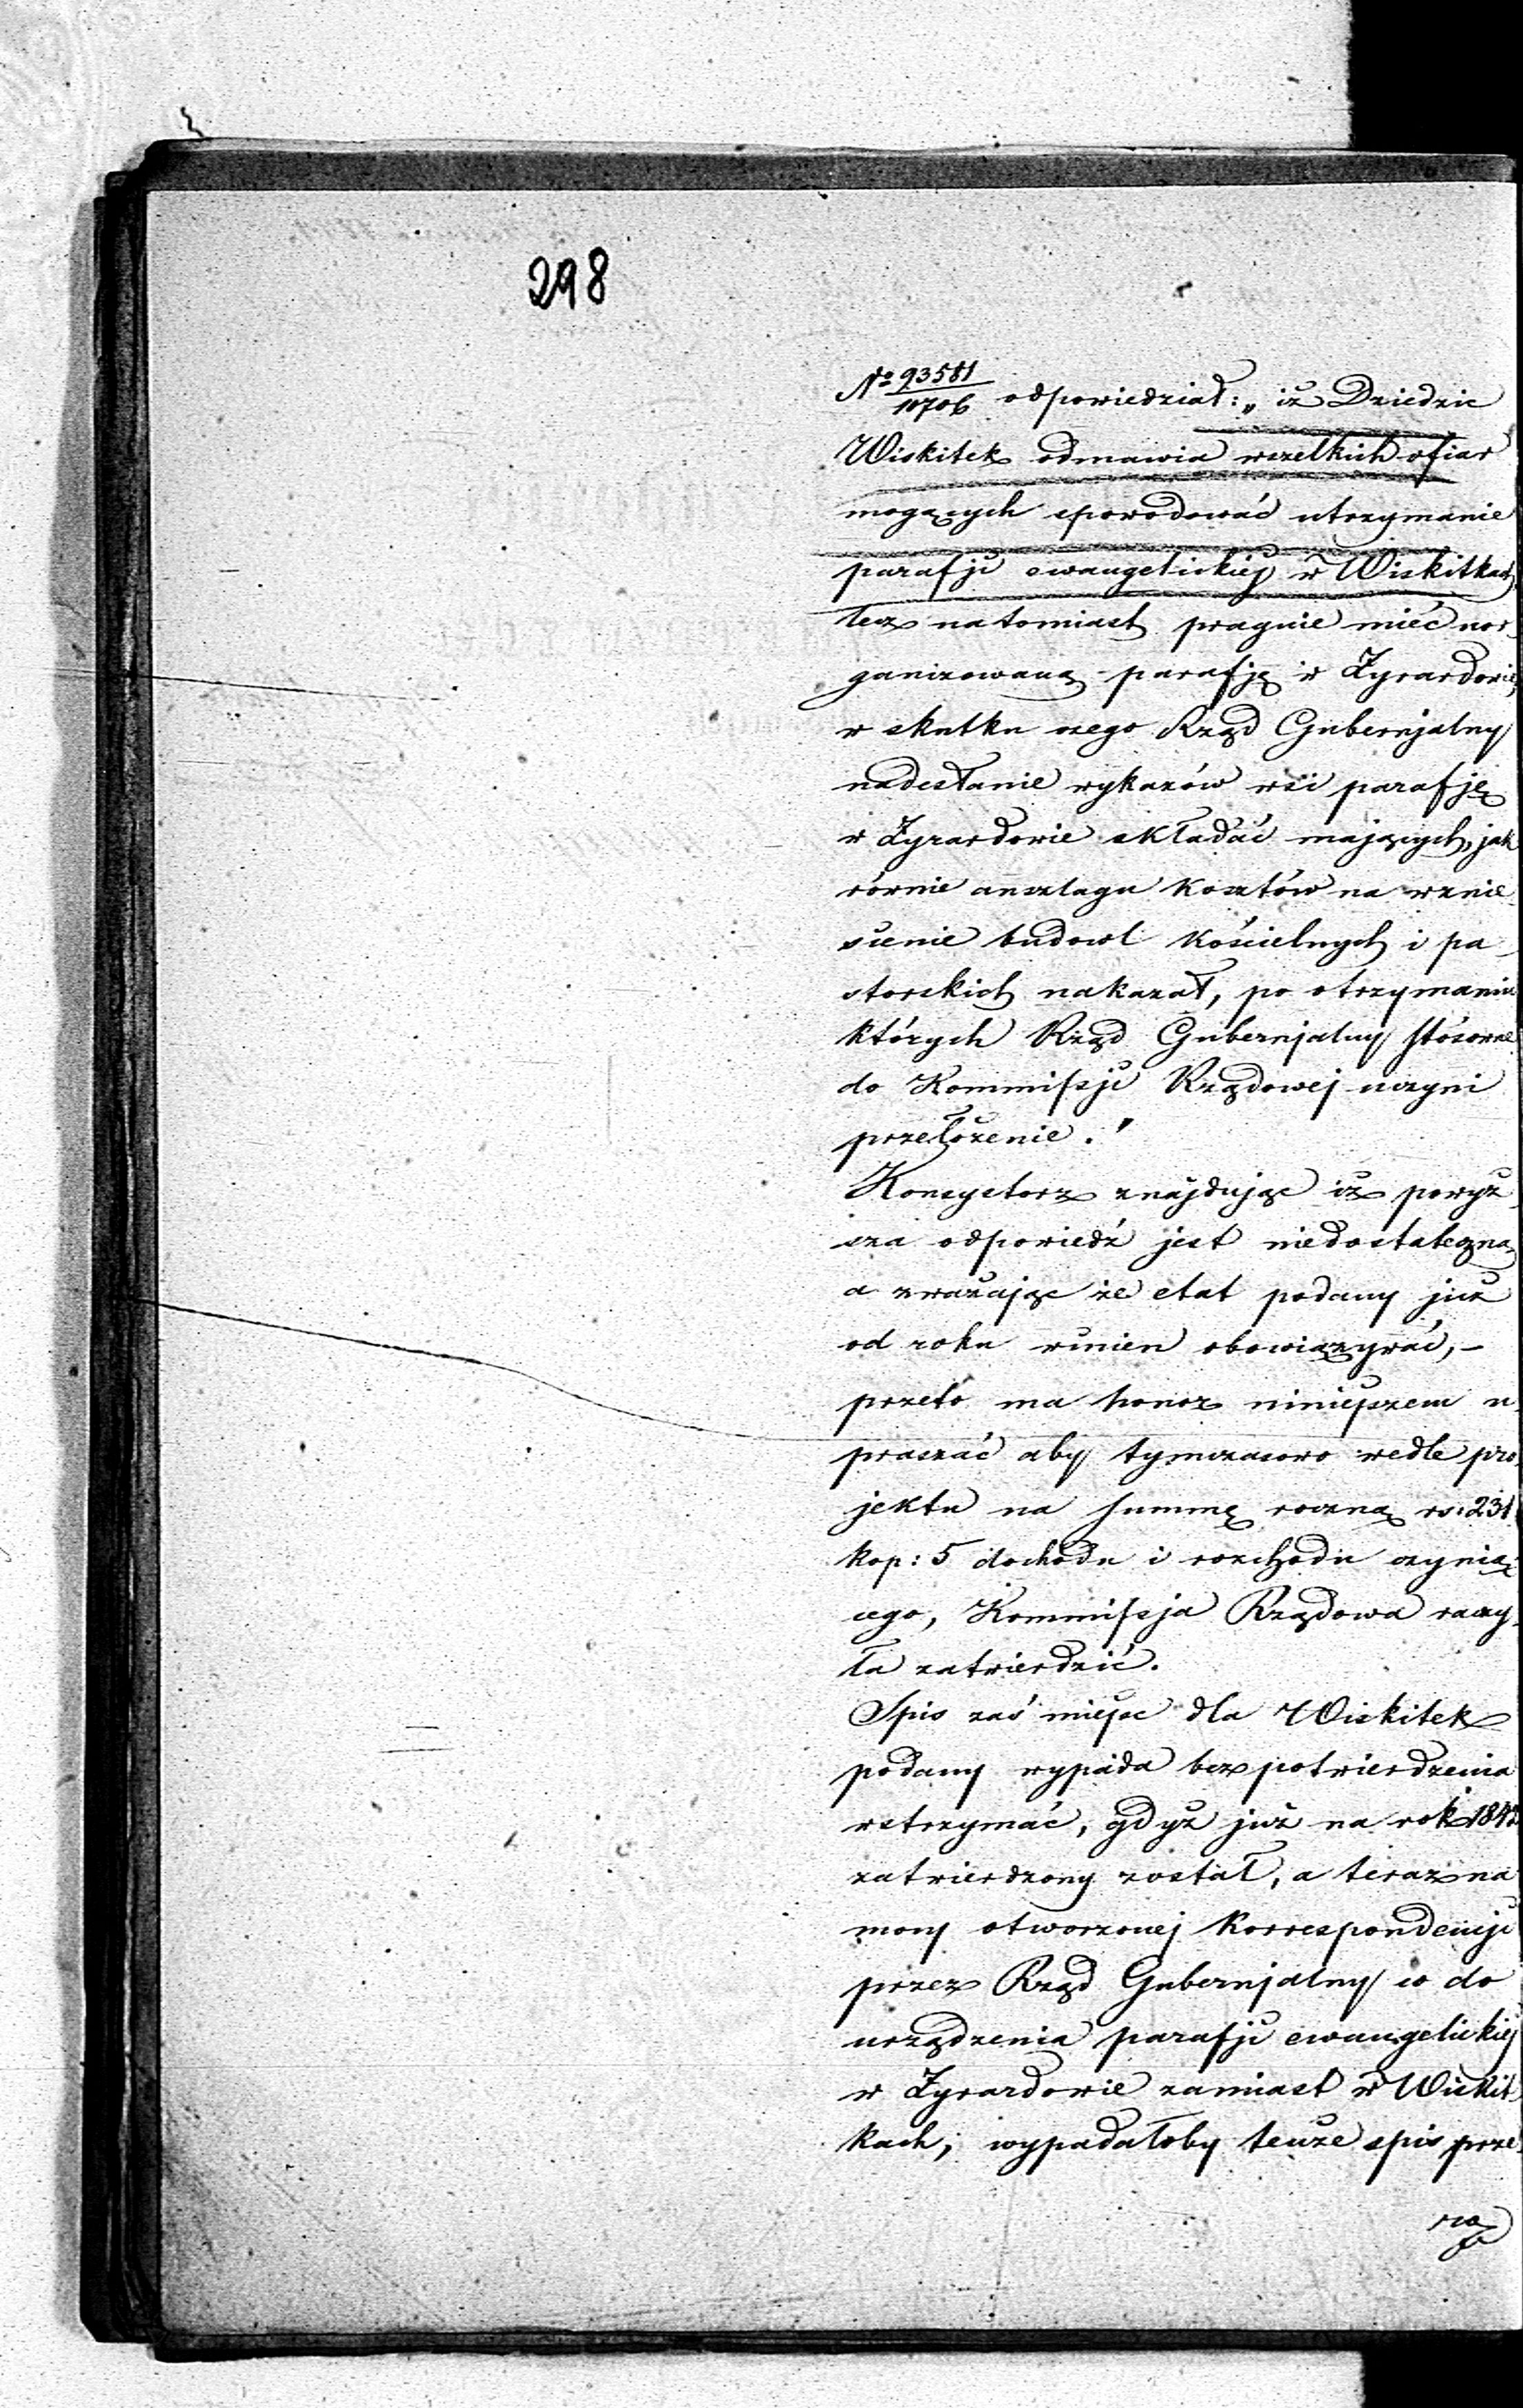 298
№ 93581/10706 odpowiedział: „iż Dziedzic
Wiskitek odmawia wszelkich ofiar
mogących spowodować utrzymanie
parafji ewangelickiej w Wiskitkach,
lecz natomiast pragnie mieć uor-
ganizowaną parafję w Żyrardowie,
w skutku czego Rząd Gubernjalny
nadesłanie wykazów wsi parafję
w Żyrardowie składać mających, jak
równie anszlagu kosztów na wznie-
sienie budowl kościelnych i pa-
storskich nakazał, po otrzymaniu
których Rząd Gubernjalny stósowne
do Kommissji Rządowej uczyni
przełożenie."
Konsystorz znajdując iż powyż-
sza odpowiedź jest niedostateczną
a zważając że etat podany już
od roku winien obowiązywać, -
przeto ma honor niniejszem u-
praszać aby tymczasowo wedle pro-
jektu na summę roczną rs: 231.
kop: 5 dochodu i rozchodu czynią-
cego, Kommissja Rządowa raczy-
ła zatwierdzić.
Spis zaś miejsc dla Wiskitek
podany wypada bez potwierdzenia
wstrzymać, gdyż już na rok
zatwierdzony został, a teraz na
mocy otworzonej korrespondencji
przez Rząd Gubernjalny co do
urządzenia parafji ewangelickiej
w Żyrardowie zamiast w Wiskit-
kach, wypadałoby tenże spis prze-